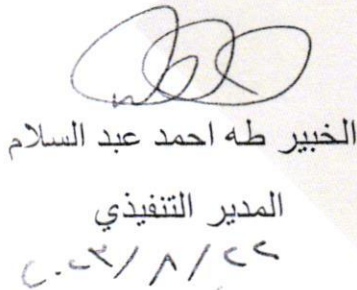 الخبير طه احمد عبد السلام
المدير التنفيذي
٢٠٢٣/٨/٢٢